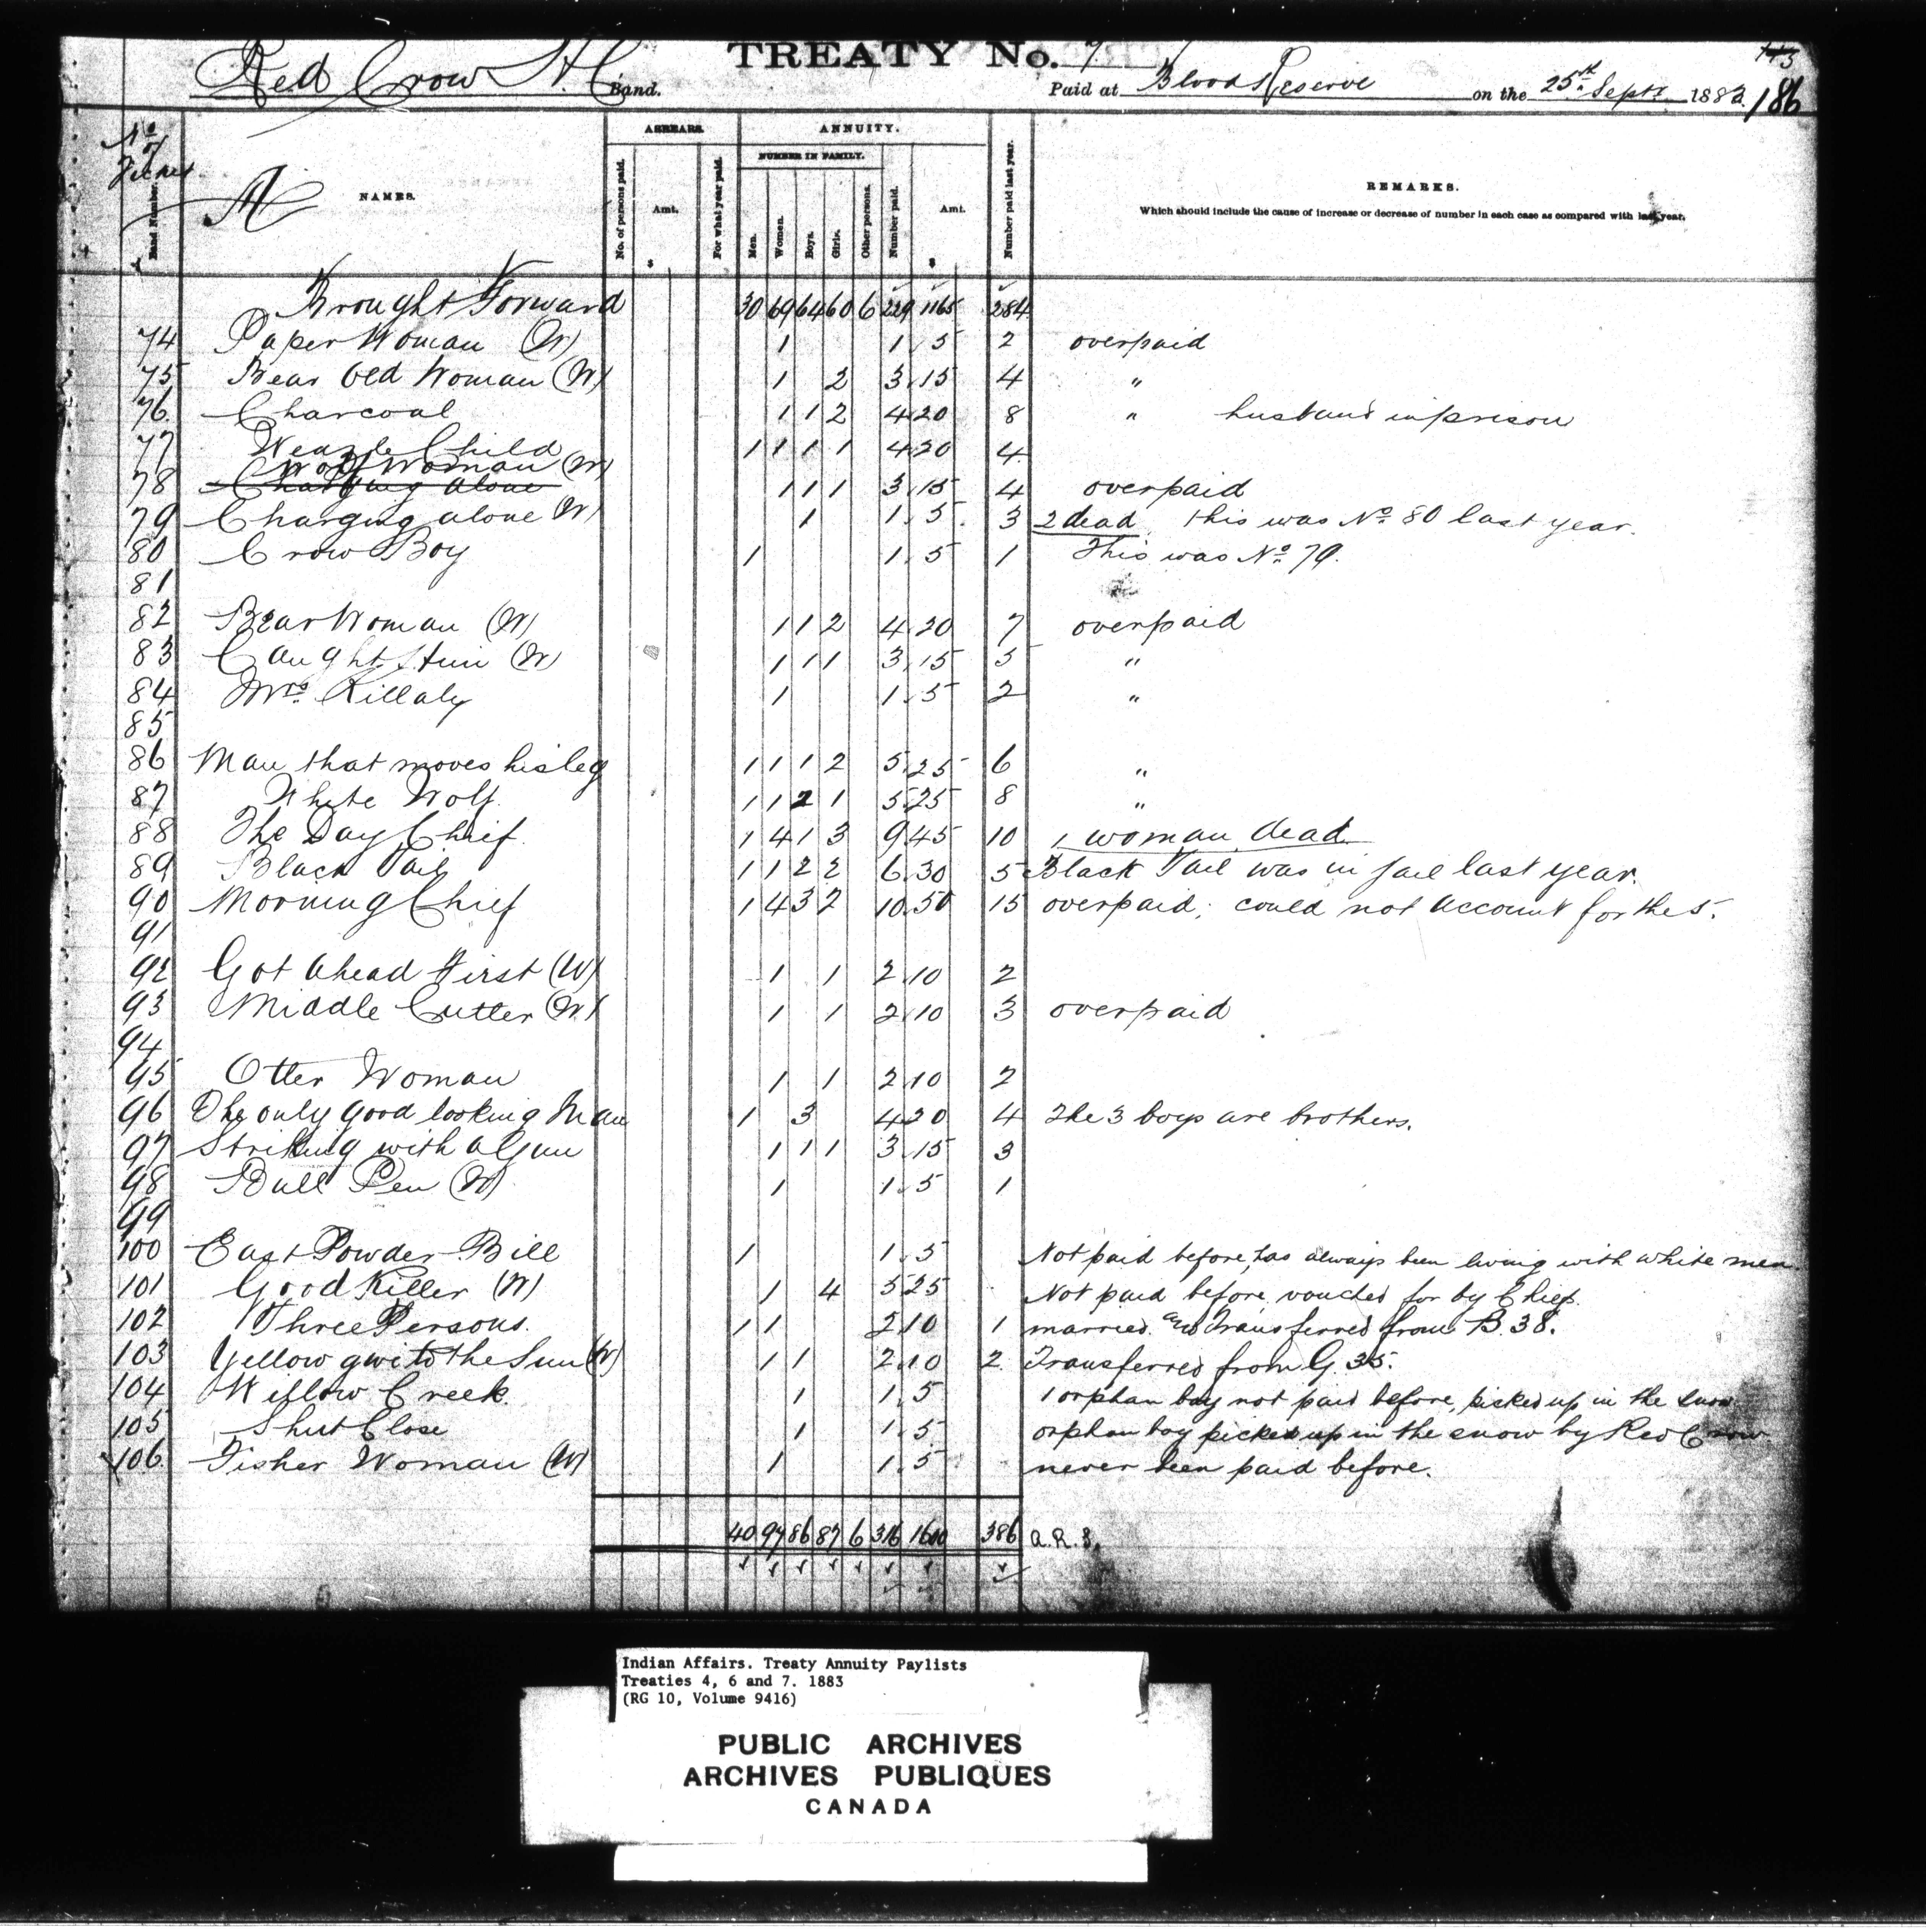 TREATY No. 7
143
Red Crow H.C. Band. Paid at Blood Reserve on the 25th Sept. 1883. 186
No of Ticket
A
Band Number. NAMES. ARREARS. ANNUITY. REMARKS.
NUMBER IN FAMILY.
No. of persons paid. Amt. $ For what year paid. Men. Women. Boys. Girls. Other persons. Number paid. Amt. $ Number paid last year.
Which should include the cause of increase or decrease of number in each case as compared with last year.
Brought Forward 30 69 64 60 6 229 1165 284
74 Paper Woman (W) 1 1 5 2 overpaid
75 Bear Old Woman (W) 1 2 3 15 4 "
76 Charcoal 1 1 2 4 20 8 " husband in prison
77 Weazle Child 1 1 1 1 4 20 4
Wolf Woman (W)
78 Charging alone 1 1 1 3 15 4 overpaid
79 Charging alone (W) 1 1 5 3 2 dead this was No 80 last year.
80 Crow Boy 1 1 5 1 This was No 79.
81
82 Bear Woman (W) 1 1 2 4 20 7 overpaid
83 Caught (W) 1 1 1 3 15 5 "
84 Mrs. Killaly 1 1 5 2 "
85
86 Man that moves his leg 1 1 1 2 5 25 6 "
87 White Wolf 1 1 2 1 5 25 8 "
88 The Day Chief 1 4 1 3 9 45 10 1 woman dead
89 Black Tail 1 1 2 2 6 30 5 Black Tail was in jail last year.
90 Morning Chief 1 4 3 2 10 50 15 overpaid; could not account for the 5.
91
92 Got Ahead First (W) 1 1 2 10 2
93 Middle Cutter (W) 1 1 2 10 3 overpaid
94
95 Otter Woman 1 1 2 10 2
96 The only good looking Man 1 3 4 20 4 The 3 boys are brothers.
97 Striking with a Gun 1 1 1 3 15 3
98 Bull Pen (W) 1 1 5 1
99
100 East Powder Bill 1 1 5 Not paid before, has always been living with white men.
101 Good Killer (W) 1 4 5 25 Not paid before, vouched for by Chief.
102 Three Persons. 1 1 2 10 1 married and Transferred from B. 38.
103 Yellow the Sun (W) 1 1 2 10 2 Transferred from G. 35.
104 Willow Creek 1 1 5 1 orphan boy not paid before, picked up in the snow
105 Shut Close 1 1 5 orphan boy picked up in the snow by Red Crow
106 Fisher Woman (W) 1 1 5 never been paid before.
40 97 86 87 6 316 1600 386 a.R.S.
Indian Affairs. Treaty Annuity Paylists
Treaties 4, 6 and 7. 1883
(RG 10, Volume 9416)
PUBLIC ARCHIVES
ARCHIVES PUBLIQUES
CANADA